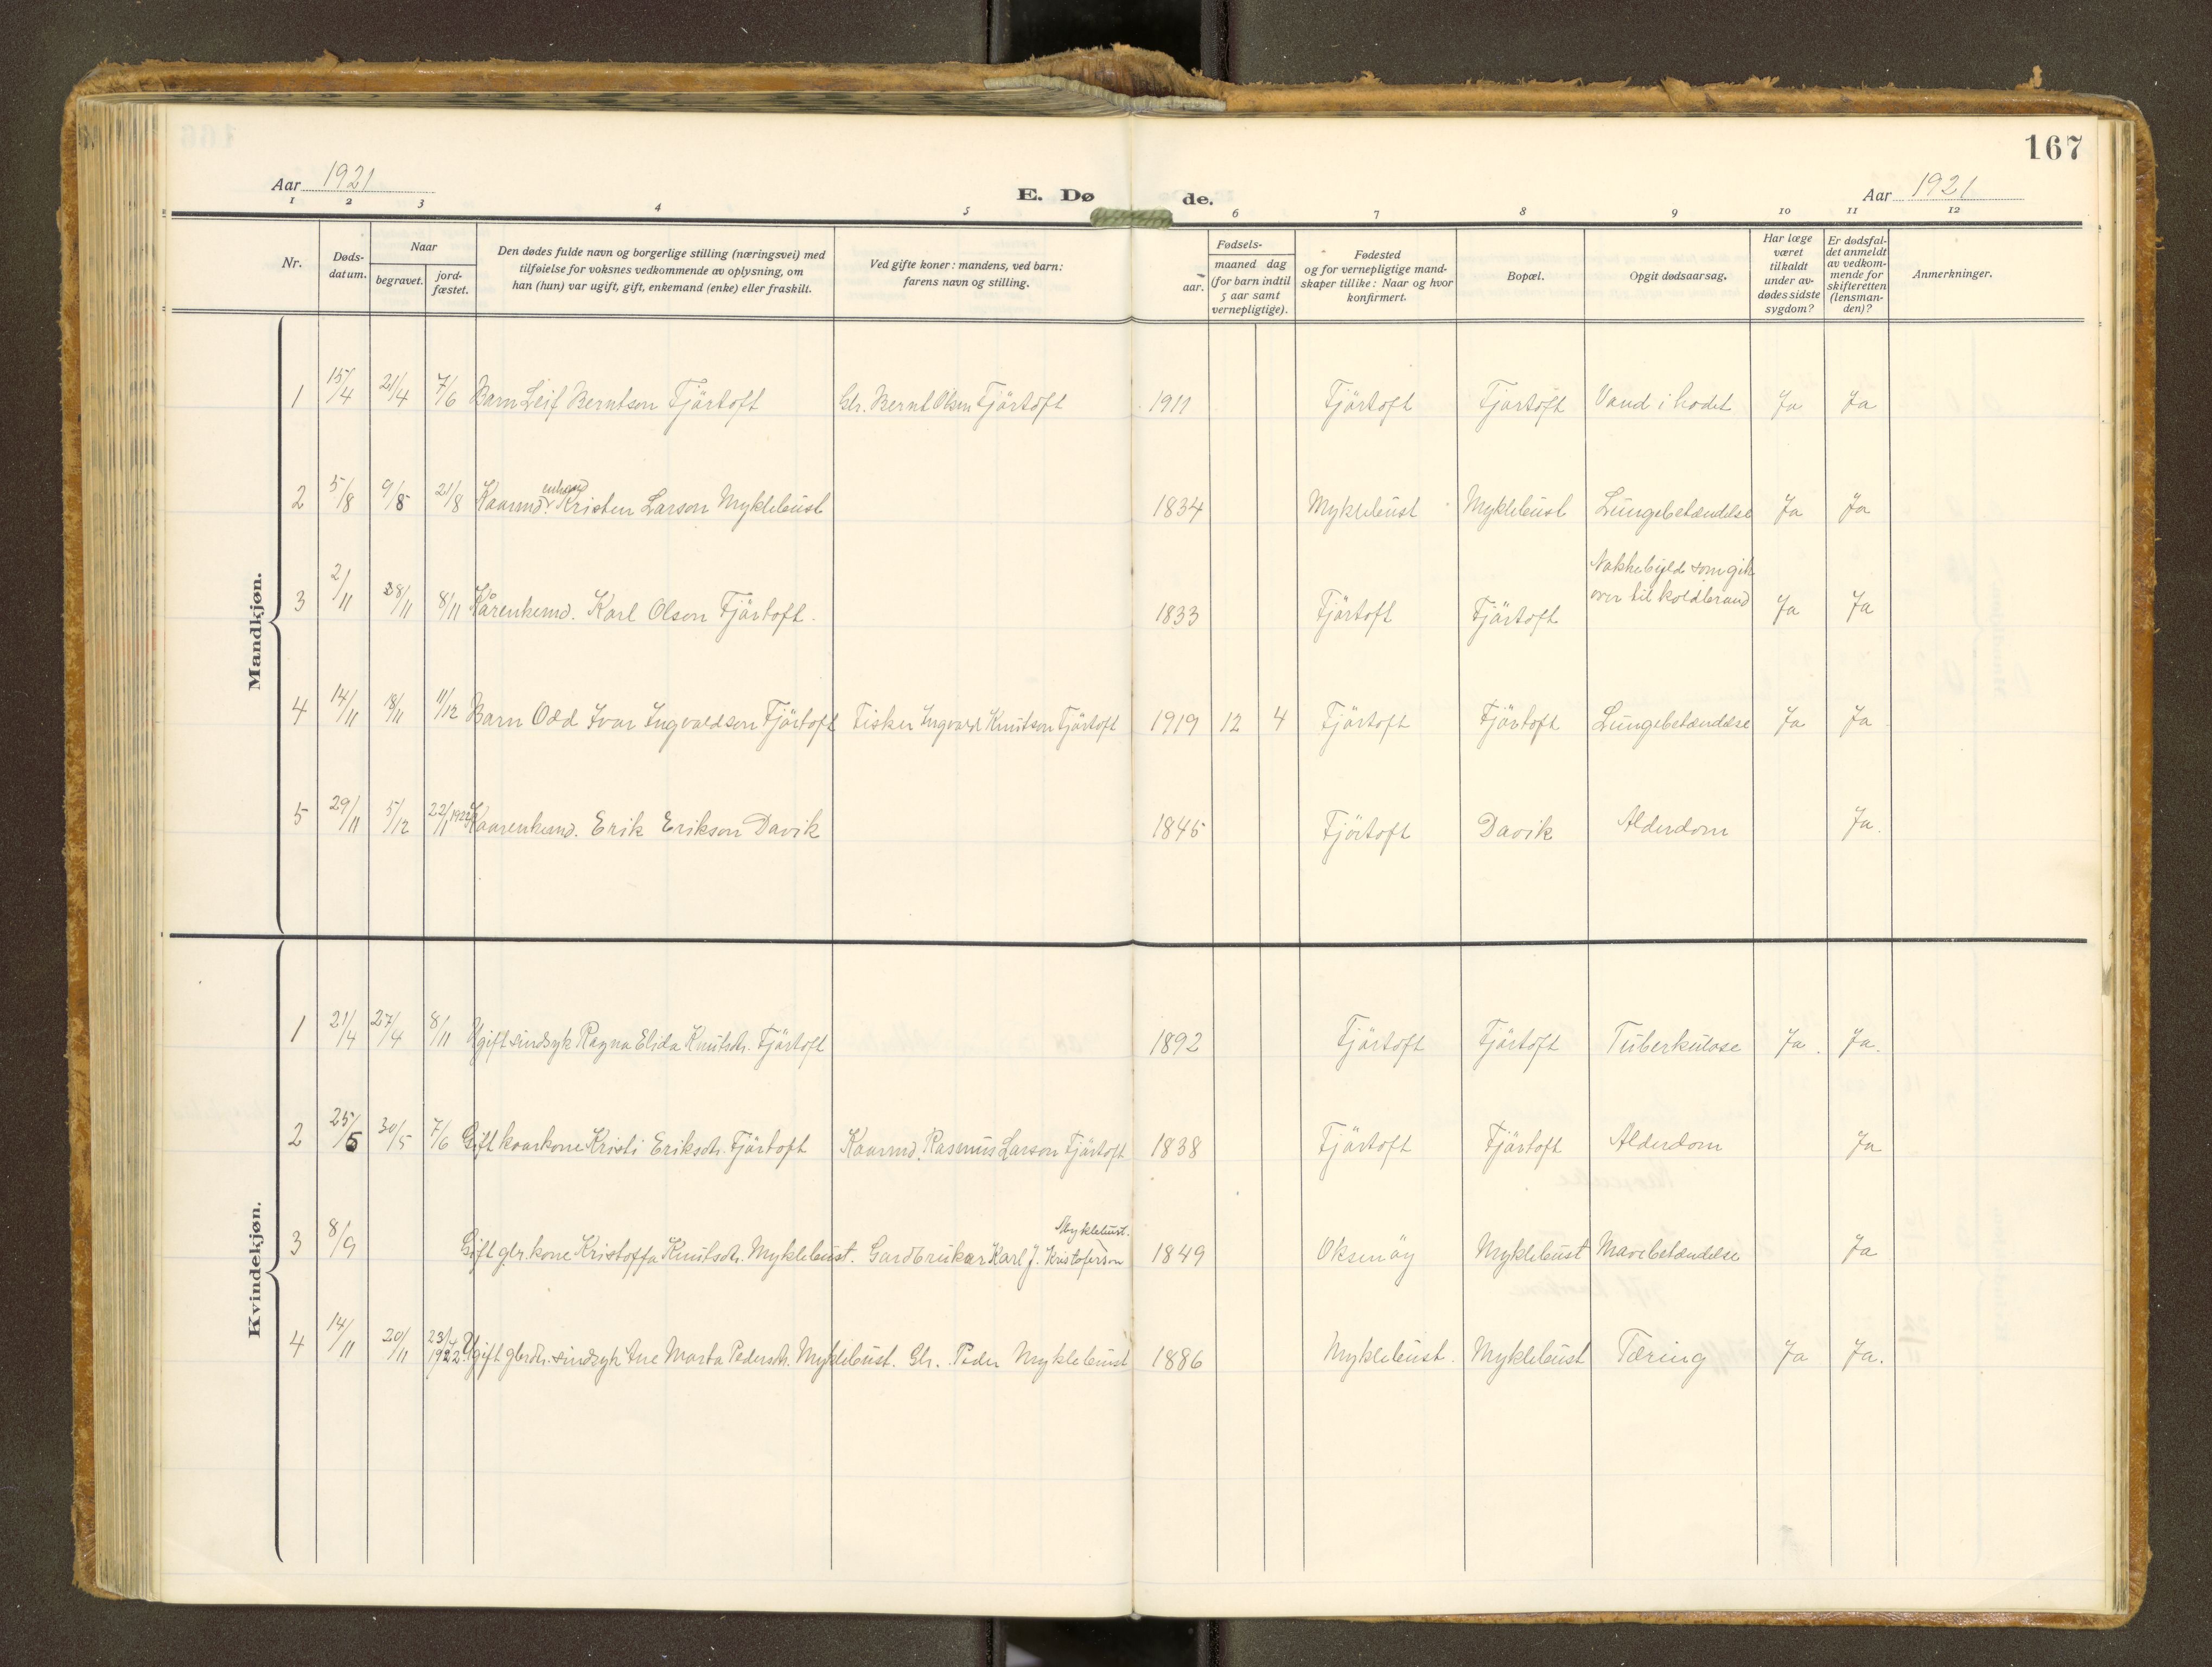 167
Aar 1921
E. Dø de.
Aar 1921
1 2 3 4 5 6 7 8 9 10 11 12
Nr.
Døds-
datum.
Naar
begravet.
jord-
fæstet.
Den dødes fulde navn og borgerlige stilling (næringsvei) med
tilføielse for voksnes vedkommende av oplysning, om
han (hun) var ugift, gift, enkemand (enke) eller fraskilt.
Ved gifte koner: mandens, ved barn:
farens navn og stilling.
Fødsels-
aar.
maaned dag
(for barn indtil
5 aar samt
vernepligtige).
Fødested
og for vernepligtige mand-
skaper tillike: Naar og hvor
konfirmert.
Bopæl.
Opgit dødsaarsag.
Har læge
været
tilkaldt
under av-
dødes sidste
sygdom?
Er dødsfal-
det anmeldt
av vedkom-
mende for
skifteretten
(lensman-
den)?
Anmerkninger.
Mandkjøn.
1 15/4 21/4 7/6 Barn Leif Berntson Fjörtoft Gbr. Bernt Olsen Fjörtoft 1911 Fjörtoft Fjörtoft Vand i hodet Ja Ja
enkemd
2 5/8 9/8 21/8 Kaarmd. Kristen Larson Myklebust 1834 Myklebust Myklebust Lungebetændelse Ja Ja
Nakkebyld som gik
over til koldbrand
3 2/11 28/11 8/11 Kårenkemd. Karl Olson Fjörtoft. 1833 Fjörtoft Fjörtoft Ja Ja
4 14/11 18/11 11/12 Barn Odd Ivar Ingvaldson Fjörtoft Fisker Ingvard Knutson Fjörtoft 1919 12 4 Fjörtoft Fjörtoft Lungebetændelse Ja Ja
5 29/11 5/12 22/1 1922 Kaarenkemd. Erik Erikson Davik 1845 Fjörtoft Davik Alderdom Ja.
Kvindekjøn.
1 21/4 27/4 8/11 Ugift sindsyk Ragna Elida Knutsdtr. Fjörtoft 1892 Fjörtoft Fjörtoft Tuberkulose Ja. Ja.
2 25/5 30/5 7/6 Gift kaarkone Kristi Eriksdtr. Fjörtoft Kaarmd. Rasmus Larson Fjörtoft 1838 Fjörtoft Fjörtoft Alderdom Ja
Myklebust.
3 8/9 Gift gbr.kone Kristoffa Knutsdtr. Myklebust. Gardbruker Karl J. Kristoferson 1849 Oksenöy Myklebust Mavebetændelse Ja
4 14/11 20/11 23/4 1922 Ugift gbrdtr. sindsyk Ane Marta Pedersdtr. Myklebust. Gbr. Peder Myklebust 1886 Myklebust. Myklebust Tæring Ja Ja.